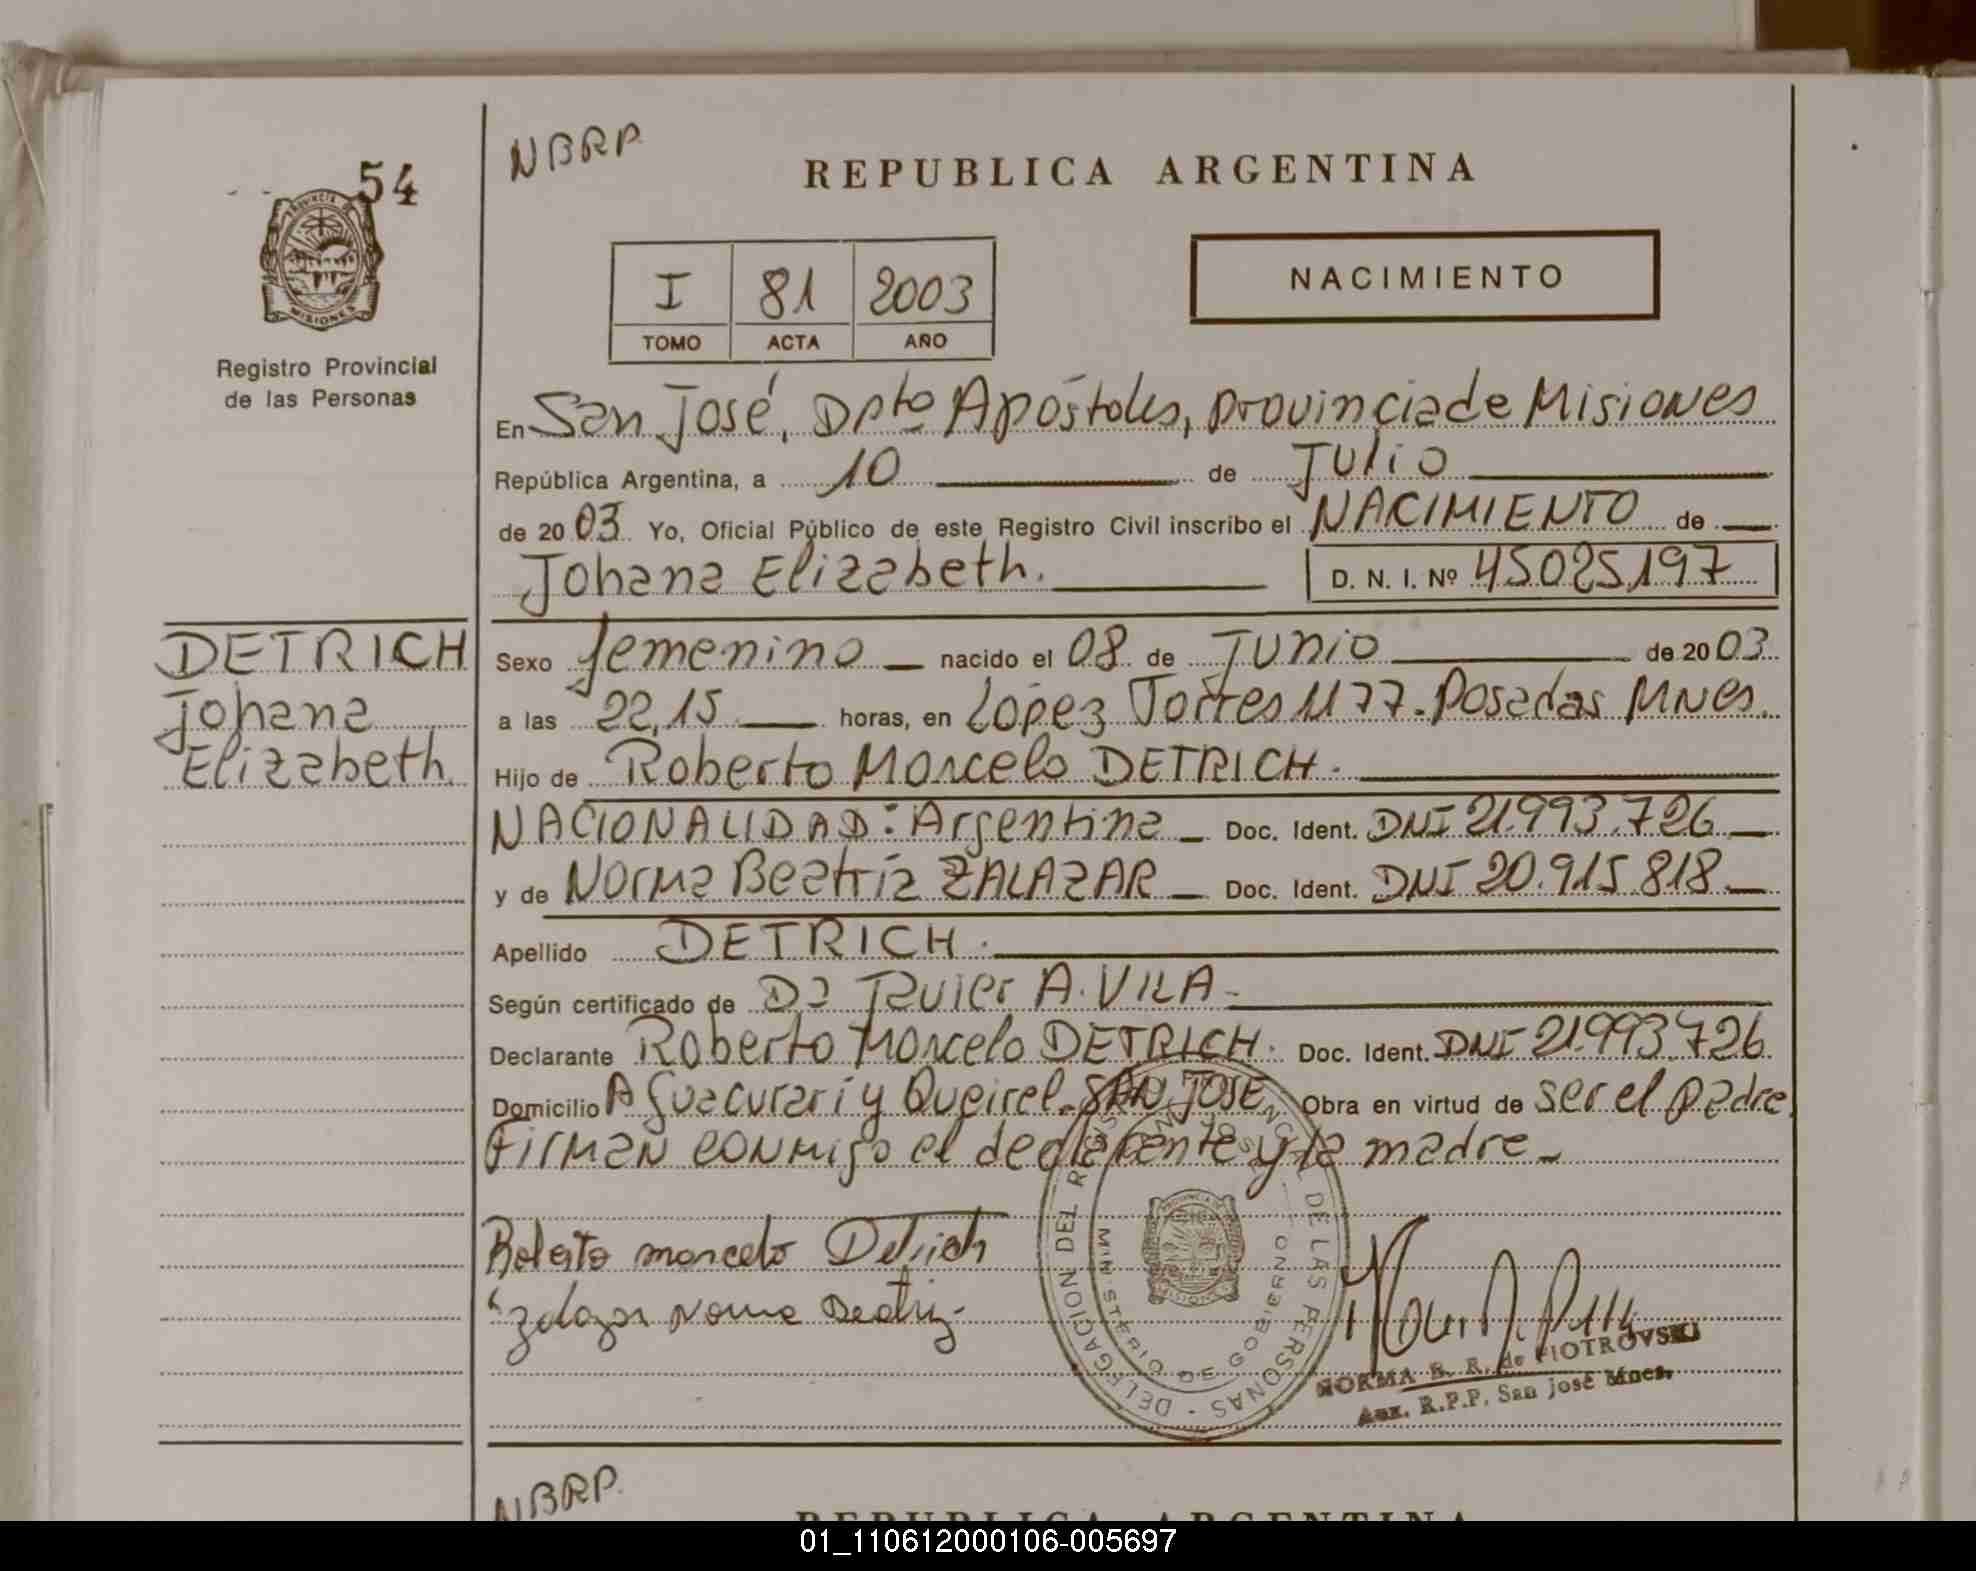 54
NBRP.
REPUBLICA ARGENTINA
PROVINCIA DE
MISIONES
I 81 2003
TOMO ACTA AÑO
NACIMIENTO
Registro Provincial
de las Personas
En San José, Dpto Apóstoles, provincia de Misiones
República Argentina, a 10 de Julio
de 2003. Yo, Oficial Público de este Registro Civil inscribo el NACIMIENTO de
Johana Elizabeth. D. N. I. Nº 45025197
DETRICH
Johana
Elizabeth.
Sexo femenino nacido el 08 de Junio de 2003
a las 22,15 horas, en López Torres 1177. Posadas Mnes.
Hijo de Roberto Marcelo DETRICH.
NACIONALIDAD: Argentina Doc. Ident. DNI 21.993.726
y de Norma Beatriz ZALAZAR Doc. Ident. DNI 20.915.818
Apellido DETRICH.
Según certificado de A. VILA
Declarante Roberto Marcelo DETRICH. Doc. Ident. DNI 21.993.726
Domicilio A Guacurarí y Queirel. SAN JOSE Obra en virtud de ser el padre.
Firman conmigo el declarante y la madre
Roberto marcelo Detrich
Zalazar Norma Beatriz
DELEGACION DEL DE LAS PERSONAS
MINISTERIO DE GOBIERNO
NORMA B. R. de PIOTROVSKI
Aux. R.P.P. San José Mnes.
NBRP.
REPUBLICA ARGENTINA
01_110612000106-005697